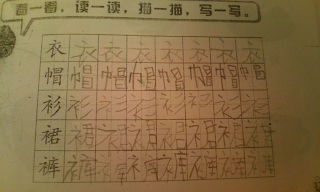 看一看，读一读，描一描，写一写。
衣 衣 衣 衣 衣 衣 衣 衣
帽 帽 帽 帽 帽 帽 帽 帽
衫 衫 衫 衫 衫 衫 衫 衫
裙 裙 裙 裙 裙 裙 裙 裙
裤 裤 裤 裤 裤 裤 裤 裤